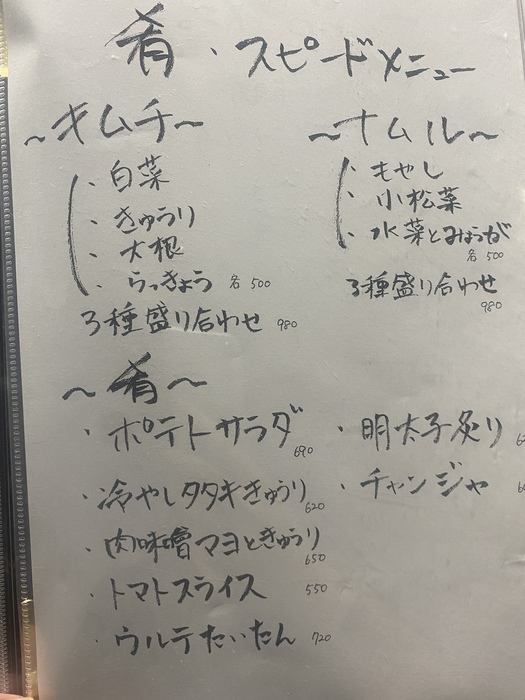 肴・スピードメニュー
~キムチ~
・白菜
・きゅうり
・大根
・らっきょう 各500
3種盛り合わせ 980
~ナムル~
・もやし
・小松菜
・水菜とみょうが
各500
3種盛り合わせ
980
~肴~
・ポテトサラダ 690
・冷やしタタキきゅうり 620
・肉味噌マヨときゅうり 650
・トマトスライス 550
・ウルテたいたん 720
・明太子炙り
・チャンジャ